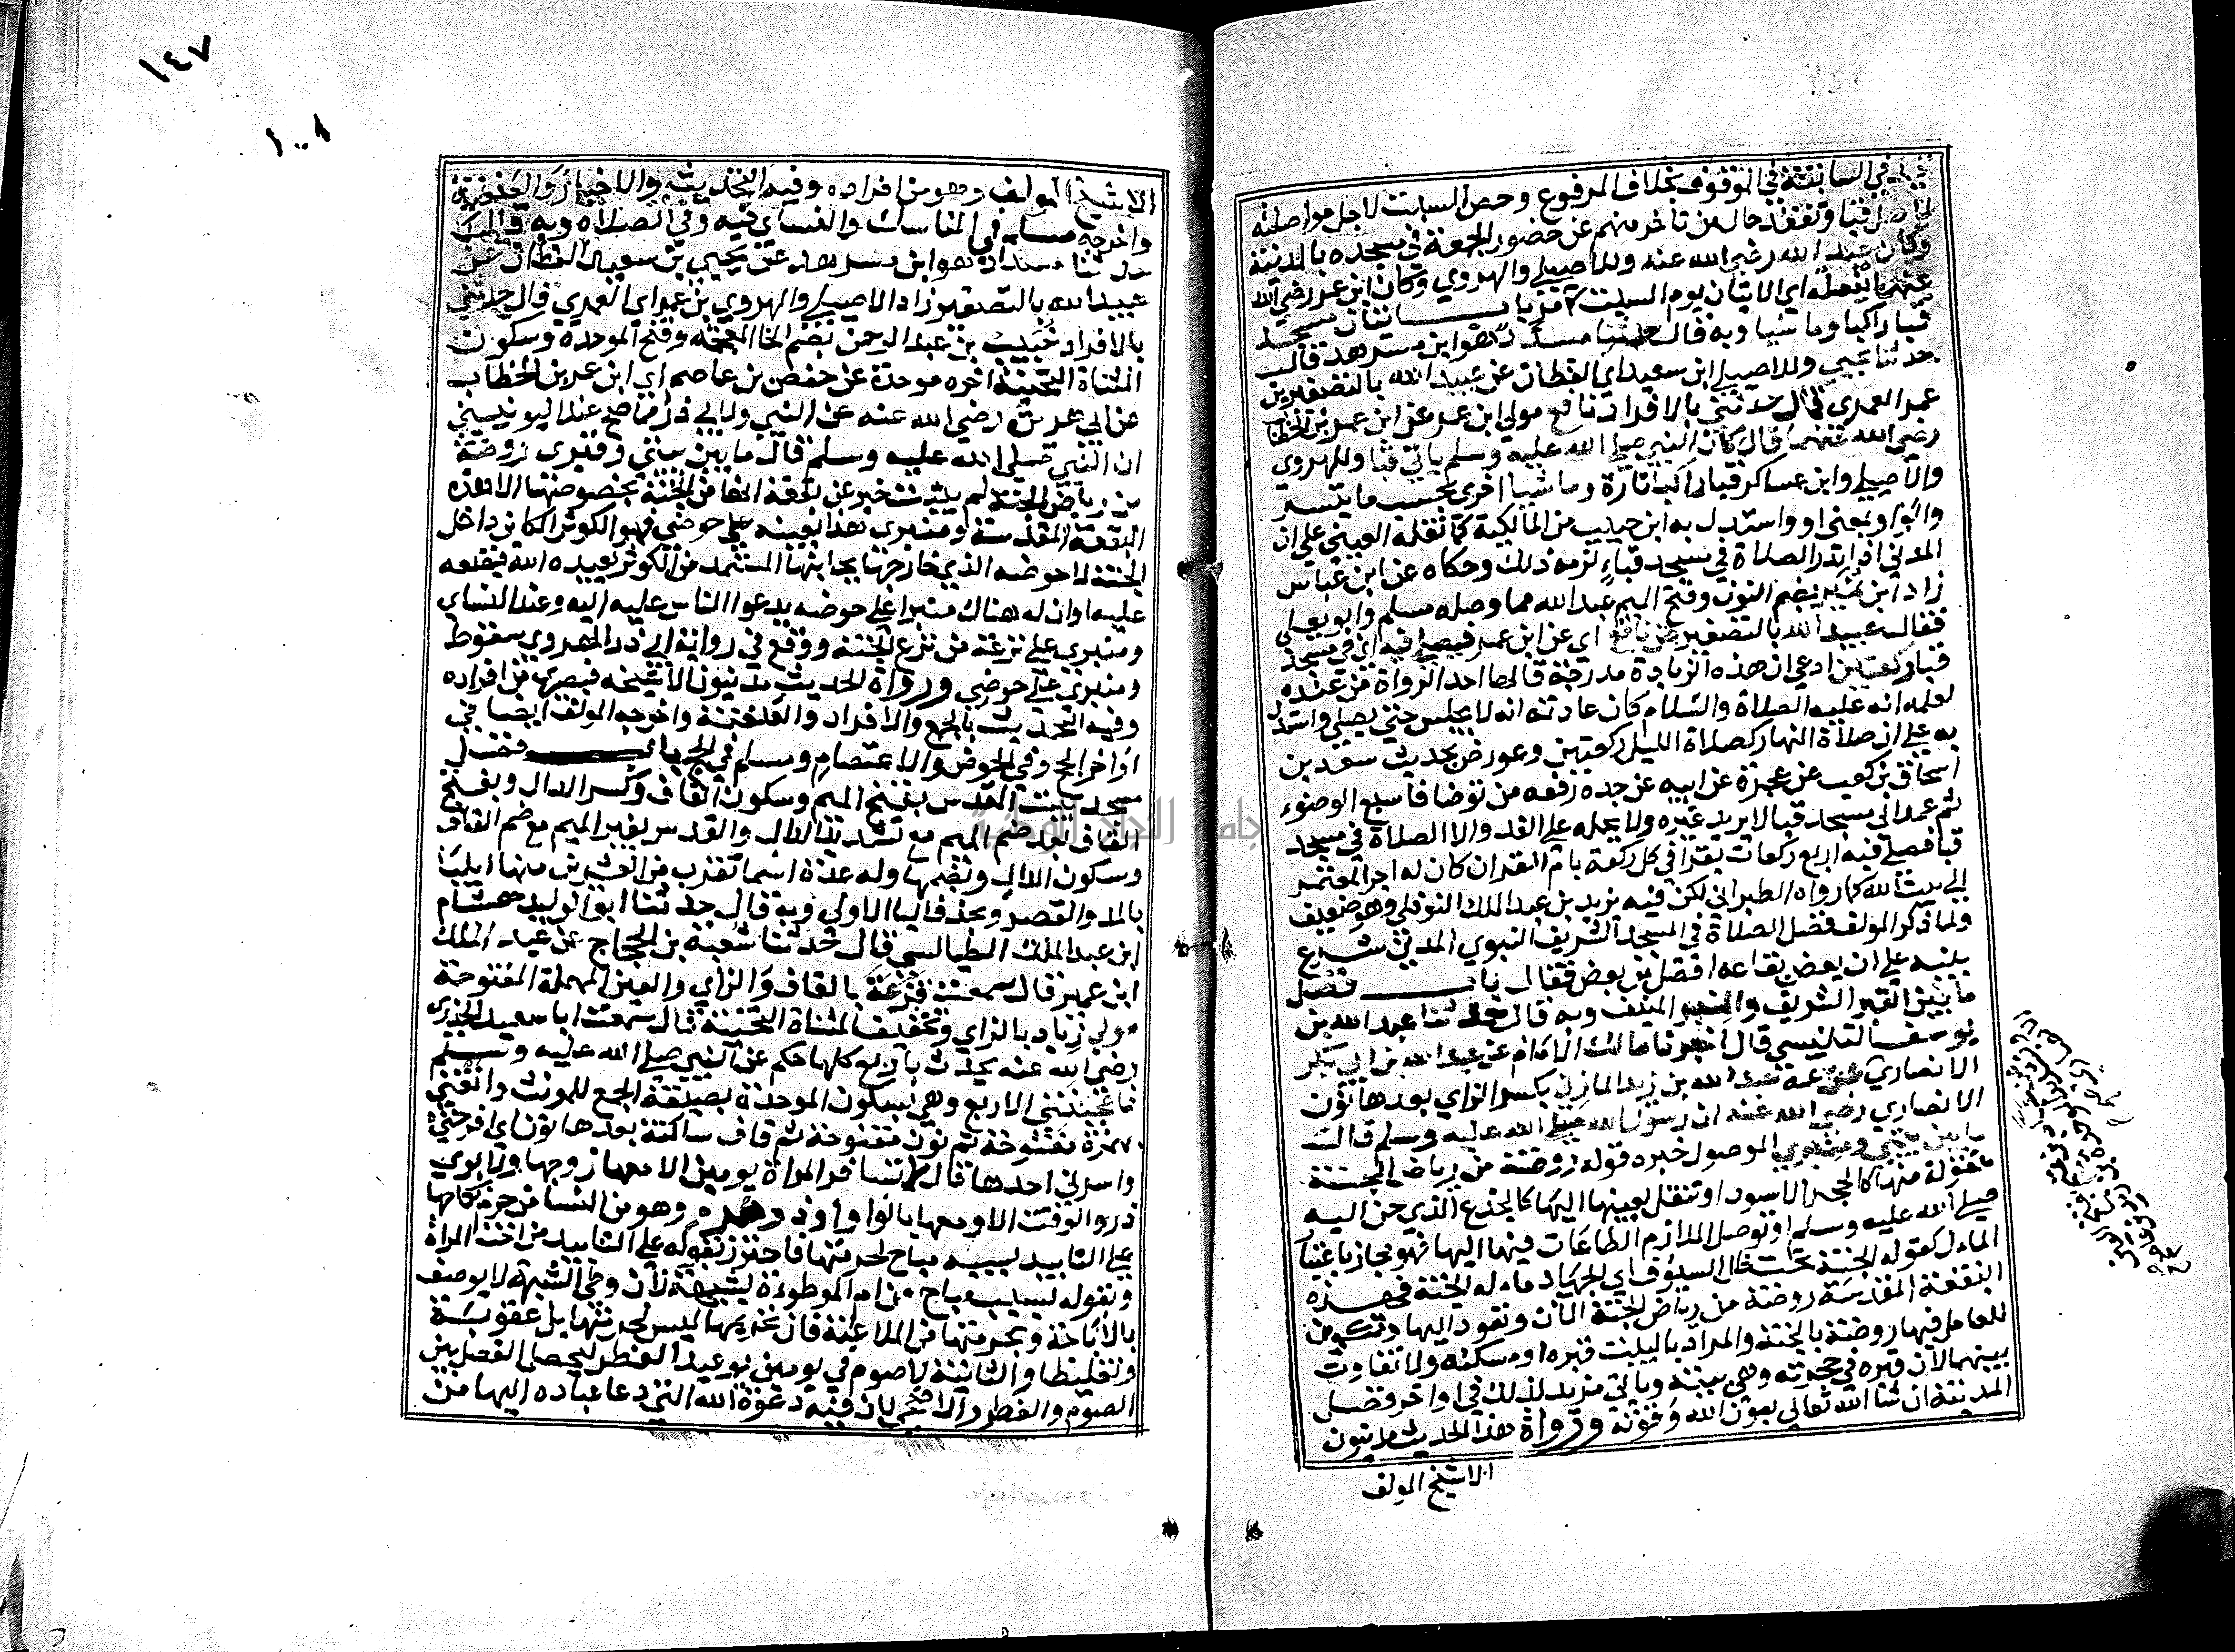 في السابقة في الموقوف بخلاف المرفوع وخص السبت لاجل مواصلته
لاهل قبا وتفقد حال من تاخر منهم عن حضور الجمعة في مسجده بالمدينة
وكان عبد الله رضي الله عنه وللاصيلي والهروي وكان ابن عمر رضي الله
عنهما يفعله اي الاتيان يوم السبت باب اتيان مسجد
قبا راكبا وماشيا وبه قال حدثنا مسدد هو ابن مسرهد قال
حدثنا يحيي وللاصيلي ابن سعيد اي القطان عن عبيد الله بالتصغير بن
عمر العمري قال حدثني بالافراد نافع مولي ابن عمر عن ابن عمر بن الخطاب
رضي الله عنهما قال كان النبي صلي الله عليه وسلم ياتي قبا وللهروي
والاصيلي وابن عساكر قبا راكبا تارة وماشيا اخري بحسب ما يتيسر
والواو بمعني او واستدل به ابن حبيب من المالكية كما نقله العيني علي ان
المدني اذا نذر الصلاة في مسجد قباء لزمه ذلك وحكاه عن ابن عباس
زاد ابن نمير بضم النون وفتح الميم عبد الله مما وصله مسلم وابو يعلي
فقال عبيد الله بالتصغير عن نافع اي عن ابن عمر فيصلي فيه اي في مسجد
قبا ركعتين ادعي ان هذه الزيادة مدرجة قالها احد الرواة من عنده
لعلمه انه عليه الصلاة والسلام كان عادته انه لا يجلس حتي يصلي واستدل
به علي ان صلاة النهار كصلاة الليل ركعتين وعورض بحديث سعد بن
اسحاق بن كعب بن عجرة عن ابيه عن جده رفعه من توضا فاسبغ الوضوء
ثم عمد الي مسجد قبا لا يريد غيره ولا يحمله علي الغدو الا الصلاة في مسجد
قبا فصلي فيه اربع ركعات يقرا في كل ركعة بام القران كان له اجر المعتمر
الي بيت الله كما رواه الطبراني لكن فيه يزيد بن عبد الملك النوفلي وهو ضعيف
ولما ذكر المولف فضل الصلاة في المسجد الشريف النبوي المدني شرع
ينبه علي ان بعض بقاعه افضل من بعض فقال باب فضل
ما بين القبر الشريف والمنبر المنيف وبه قال حدثنا عبد الله بن
يوسف التنيسي قال اخبرنا مالك الامام عن عبد الله بن ابي بكر
الانصاري عن عمه عبد الله بن زيد المازني بكسر الزاي بعدها نون
الانصاري رضي الله عنه ان رسول الله صلي الله عليه وسلم قال
ما بين بيتي ومنبري الموصول خبره قوله روضة من رياض الجنة
منقولة منها كالحجر الاسود او تنقل بعينها اليها كالجذع الذي حن اليه
صلي الله عليه وسلم او توصل الملازم الطاعات فيها اليها فهو مجاز باعتبار
المال كقوله الجنة تحت ظلال السيوف اي الجهاد ماله الجنة فهذه
البقعة المقدسة روضة من رياض الجنة الان وتعود اليها وتكون
للعامل فيها روضة بالجنة والمراد بالبيت قبره او مسكنه ولا تفاوت
بينهما لان قبره في حجرته وهي بيته وياتي مزيد لذلك في اواخر فضل
المدينة ان شا الله تعالي بعون الله وقوته ورواة هذا الحديث مدنيون
الا شيخ المولف
١٤٧
الا شيخ المولف وهو من افراده وفيه التحديث والاخبار والعنعنة
واخرجه مسلم في المناسك والنساي فيه وفي الصلاة وبه قال
حدثنا مسدد هو ابن مسرهد عن يحيي بن سعيد القطان عن
عبيد الله بالتصغير زاد الاصيلي والهروي بن عمر اي العمري قال حدثني
بالافراد خبيب بن عبد الرحمن بضم الخا المعجمة وفتح الموحدة وسكون
المثناة التحتية اخره موحدة عن حفص بن عاصم اي ابن عمر بن الخطاب
عن ابي هريرة رضي الله عنه عن النبي ولابي ذر مما صح عند اليونيني
ان النبي صلي الله عليه وسلم قال ما بين بيتي ومنبري روضة
من رياض الجنة لم يثبت خبر عن بقعة انها من الجنة بخصوصها الا هذه
البقعة المقدسة ومنبري هذا بعينه علي حوضي نهر الكوثر الكاين داخل
الجنة لا حوضه الذي خارجها بجانبها المستمد من الكوثر يعيده الله فيضعه
عليه او ان له هناك منبرا علي حوضه يدعوا الناس عليه اليه وعند النساي
ومنبري علي ترعة من ترع الجنة ووقع في رواية ابي ذر الهروي سقوط
ومنبري علي حوضي ورواة الحديث مدنيون الا شيخه فبصري من افراده
وفيه التحديث بالجمع والافراد والعنعنة واخرجه المولف ايضا في
اواخر الحج وفي الحوض والاعتصام ومسلم في الحج باب فضل
مسجد بيت المقدس بفتح الميم وسكون القاف وكسر الدال وبفتح
القاف بعد ضم الميم مع تشديد الدال والقدس بغير الميم مع ضم القاف
وسكون الدال وبضمها وله عدة اسما تقرب من العشرين منها ايليا
بالمد والقصر وبحذف اليا الاولي وبه قال حدثنا ابو الوليد هشام
ابن عبد الملك الطيالسي قال حدثنا شعبة بن الحجاج عن عبد الملك
ابن عمير قال سمعت قزعة بالقاف والزاي والعين المهملة المفتوحة
مولي زياد بالزاي وتخفيف المثناة التحتية قال سمعت ابا سعيد الخدري
رضي الله عنه يحدث باربع كلها حكم عن النبي صلي الله عليه وسلم
فاعجبنني الاربع وهي بسكون الموحدة بصيغة الجمع للمونث وانقنني
بهمزة مفتوحة ثم نون مفتوحة ثم قاف ساكنة بعدها نون اي افرحنني
واسررنني احدها قال لا تسافر المراة يومين الا معها زوجها ولابوي
ذر والوقت الا ومعها بالواو او ذو محرم وهو من النسا من حرم نكاحها
علي التابيد بسبب مباح لحرمتها فاحترز بقوله علي التابيد من اخت المراة
وبقوله بسبب مباح من ام الموطوءة بشبهة لان وطي الشبهة لا يوصف
بالاباحة وبحرمتها من الملاعنة فان تحريمها ليس لحرمتها بل عقوبة
وتغليظا والثانية لا صوم في يومين يوم عيد الفطر ليحصل الفصل بين
الصوم والفطر والاضحي لان فيه دعوة الله التي دعا عباده اليها من